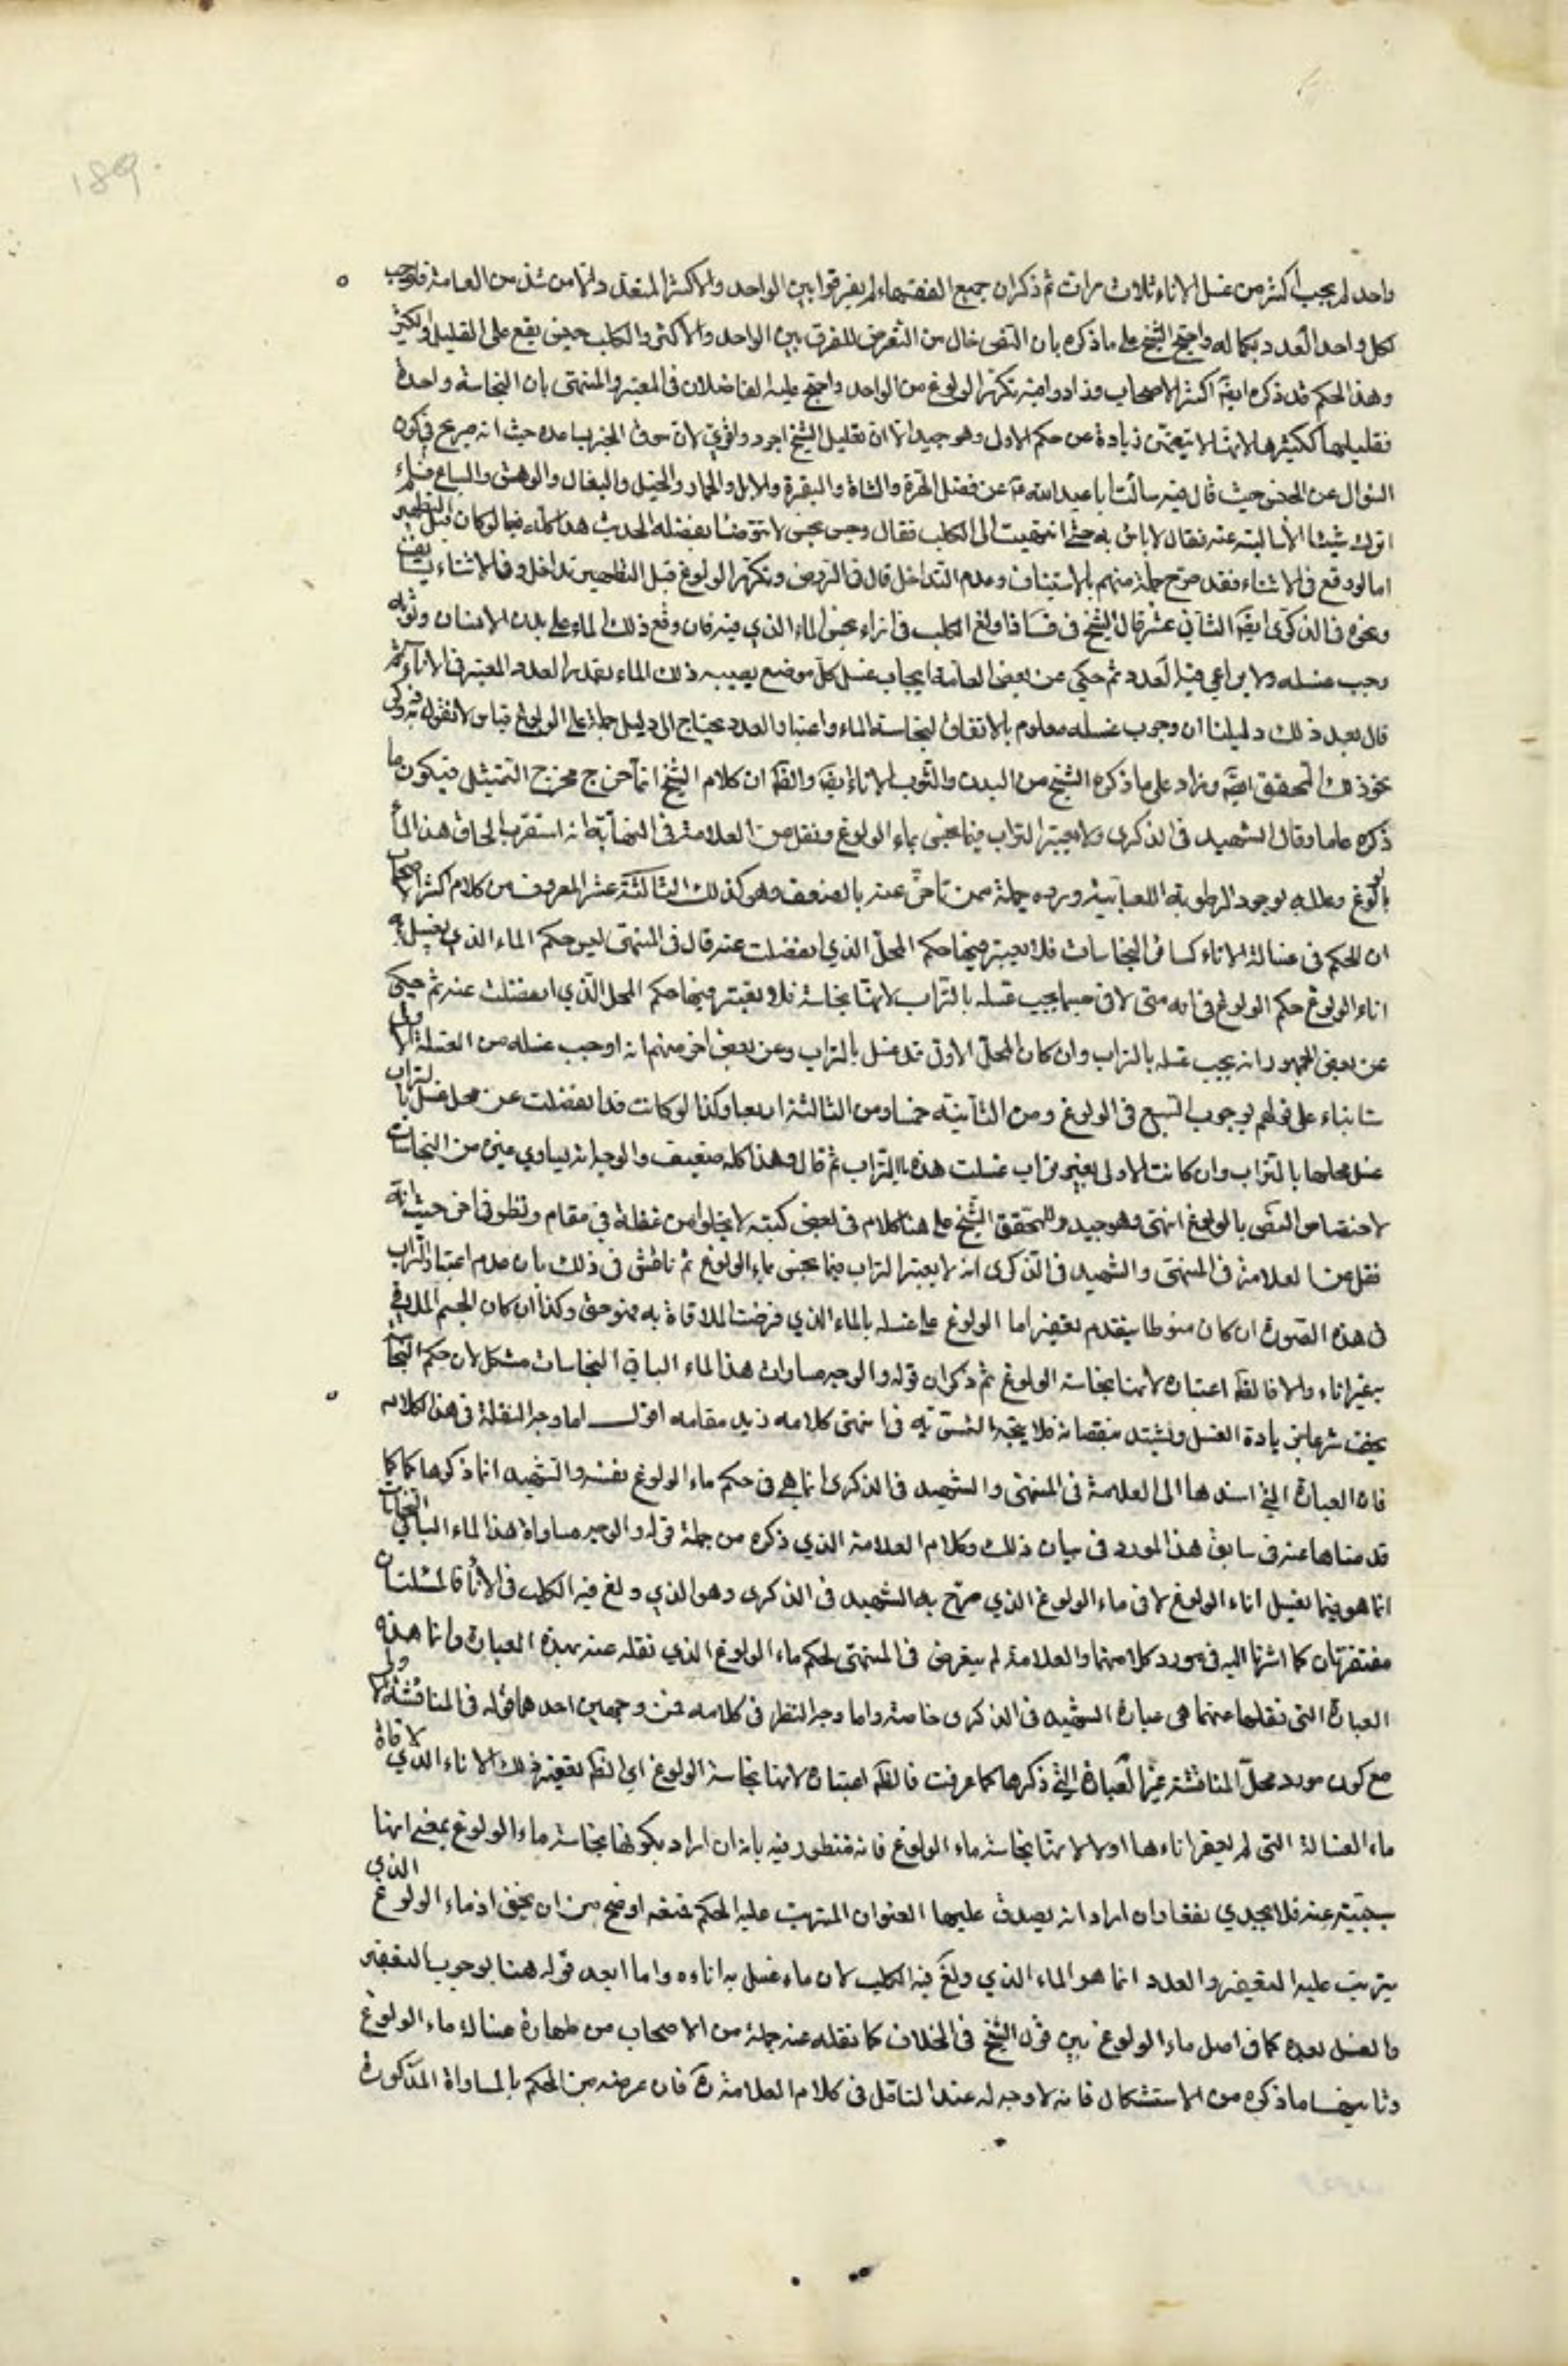 189.
واحد لم يجب اكثر من غسل الاناء ثلاث مرات ثم ذكر ان جميع الفقهاء لم يفرقوا بين الواحد والاكثر المتعدد وانما من شذ من العامة فاوجب
لكل واحد العدد بكماله واحتج الشيخ على ما ذكره بان النص خال من التعرض للفرق بين الواحد والاكثر والكلب جنس يقع على القليل والكثير
وهذا الحكم قد ذكره ايضا اكثر الاصحاب وزادوا فيه تكرر الولوغ من الواحد واحتج عليه الفاضلان في المعتبر والمنتهى بان النجاسة واحدة
فقليلها ككثيرها لانها لا تتضمن زيادة عن حكم الاول وهو جيد الا ان تعليل الشيخ اجود واقوى لان سوق الخبر يساعده حيث انه صريح في كون
السؤال عن الجنس حيث قال فيه سالت ابا عبد الله ع عن فضل الهرة والشاة والبقرة والابل والحمار والخيل والبغال والوحش والسباع فلم
اترك شيئا الا سالته عنه فقال لا باس به حتى انتهيت الى الكلب فقال رجس نجس لا تتوضا بفضله الحديث هذا كله فيما لو كان قبل التطهير
اما لو وقع في الاثناء فقد صرح جملة منهم بالاستيناف وعدم التداخل قال في الروض وتكرر الولوغ قبل التطهير تداخل وفي الاثناء يستانف
ونحوه في الذكرى ايضا الثاني عشر قال الشيخ في ف اذا ولغ الكلب في اناء نجس الماء الذي فيه فان وقع ذلك الماء على بدن الانسان وثوبه
وجب غسله ولا يراعى فيه العدد ثم حكى عن بعض العامة ايجاب غسل كل موضع يصيبه ذلك الماء بقدر العدد المعتبر في الاناء ثم
قال بعد ذلك دليلنا ان وجوب غسله معلوم بالاتفاق لنجاسة الماء واعتبار العدد يحتاج الى دليل حمله على الولوغ قياس لا نقول به وذكر
نحو ذلك المحقق ايضا وزاد على ما ذكره الشيخ من البدن والثوب الاناء ايضا والظ ان كلام الشيخ انما خرج مخرج التمثيل فيكون ما
ذكره عاما وقال الشهيد في الذكرى ولا يعتبر التراب فيما نجس بماء الولوغ ونقل عن العلامة في النهاية انه استقرب الحاق هذا الماء
بالولوغ وعلله بوجود الرطوبة اللعابية ورده جملة ممن تاخر عنه بالضعف وهو كذلك الثالثة عشر المعروف من كلام اكثر الاصحاب
ان الحكم في غسالة الاناء كسائر النجاسات فلا يعتبر فيها حكم المحل الذي انفصلت عنه قال في المنتهى ليس حكم الماء الذي يغسل به
اناء الولوغ حكم الولوغ في انه متى لاقى جسما يجب غسله بالتراب لانها نجاسة فلا يعتبر فيها حكم المحل الذي انفصلت عنه ثم حكى
عن بعض الجمهور انه يجب غسله بالتراب وان كان المحل الاول قد غسل بالتراب وعن بعض اخر منهم انه اوجب غسله من الغسلة الاولى
ستا بناء على قولهم بوجوب السبع في الولوغ ومن الثانية خمسا ومن الثالثة اربعا وكذا لو كانت قد انفصلت عن محل غسل بالتراب
غسل محلها بالتراب وان كانت الاولى بغير تراب غسلت هذه بالتراب ثم قال وهذا كله ضعيف والوجه انه يساوي غيره من النجاسات
لاختصاص النص بالولوغ انتهى وهو جيد وللمحقق الشيخ علي هنا كلام في بعض كتبه لا يخلو من غفلة في مقام ونظر في اخر حيث انه
نقل عن العلامة في المنتهى والشهيد في الذكرى انه لا يعتبر التراب فيما نجس بماء الولوغ ثم ناقش في ذلك بان عدم اعتبار التراب
في هذه الصورة ان كان منوطا بتقدم تعفير اناء الولوغ على غسله بالماء الذي فرضت الملاقاة به فهو حق وكذا ان كان الجسم الملاقي
بغير اناء والا فالظ اعتباره لانها نجاسة الولوغ ثم ذكر ان قوله والوجه مساواة هذا الماء لباقي النجاسات مشكل لان حكم النجاسة
يخف شرعا بزيادة الغسل ويشتد بنقصانه فلا يتجه التسوية انتهى كلامه زيد مقامه اقول اما وجه الغفلة في هذا الكلام
فان العبارة التي اسندها الى العلامة في المنتهى والشهيد في الذكرى انما هي في حكم ماء الولوغ نفسه والشهيد انما ذكرها كما
قدمناها عنه في سابق هذا المورد في بيان ذلك وكلام العلامة الذي ذكره من جملة قوله والوجه مساواة هذا الماء لباقي النجاسات
انما هو فيما يغسل اناء الولوغ لا في ماء الولوغ الذي صرح به الشهيد في الذكرى وهو الذي ولغ فيه الكلب في الاناء فالمسئلتان
مفترقتان كما اشرنا اليه في مورد كلاميهما والعلامة لم يتعرض في المنتهى لحكم ماء الولوغ الذي نقله عنه بهذه العبارة وانما هذه
العبارة التي نقلها عنهما هي عبارة الشهيد في الذكرى خاصة واما وجه النظر في كلامه فمن وجهين احدهما قوله في المناقشة الاولى
مع كون مورد محل المناقشة غير العبارة التي ذكرها كما عرفت فالظ اعتباره لانها نجاسة الولوغ اي الظ تعفير ذلك الاناء الذي لاقاه
ماء الغسالة التي لم يعفر اناءها اولا لانها نجاسة ماء الولوغ فانه منظور فيه بانه ان اراد بكونها نجاسة ماء الولوغ بمعنى انها
مسببة عنه فلا يجدي نفعا وان اراد انه يصدق عليها العنوان المترتب عليه الحكم فمنعه اوضح من ان يخفى اذ ماء الولوغ الذي
يترتب عليه التعفير والعدد انما هو الماء الذي ولغ فيه الكلب لا ماء غسل به اناءه وما ابعد قوله هنا بوجوب التعفير
والغسل بعده كما في اصل ماء الولوغ من قول الشيخ في الخلاف كما نقله عنه جملة من الاصحاب من طهارة غسالة ماء الولوغ
وثانيهما ما ذكره من الاستشكال فانه لا وجه له عند التامل في كلام العلامة ره فان غرضه من الحكم بالمساواة المذكورة